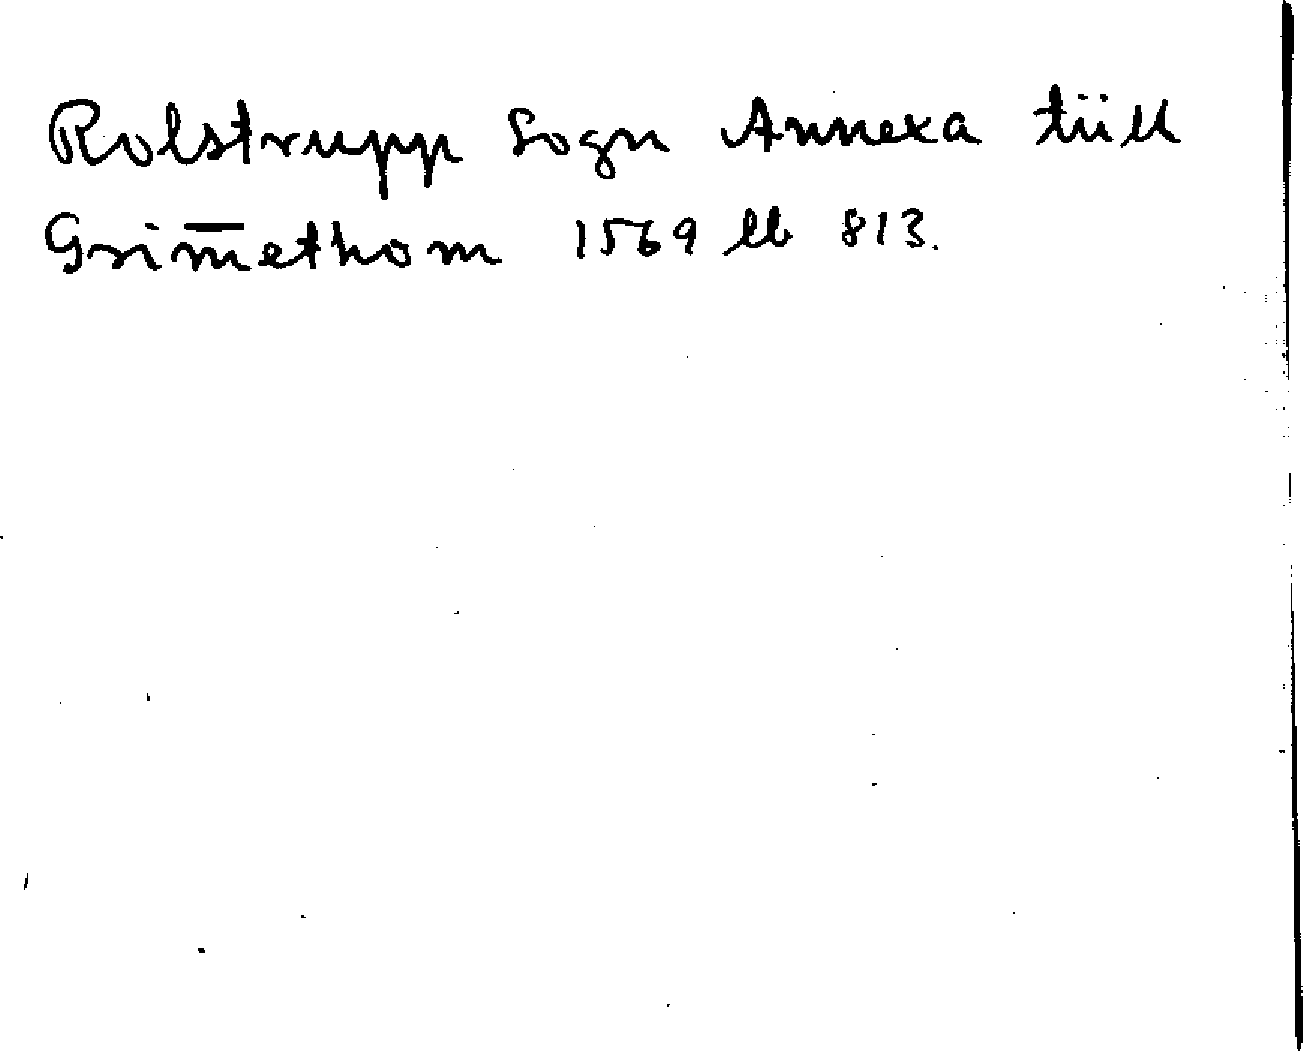 Rolstrupp Sogn Annexa tiill
Grim̅ethom 1569 lb 813.